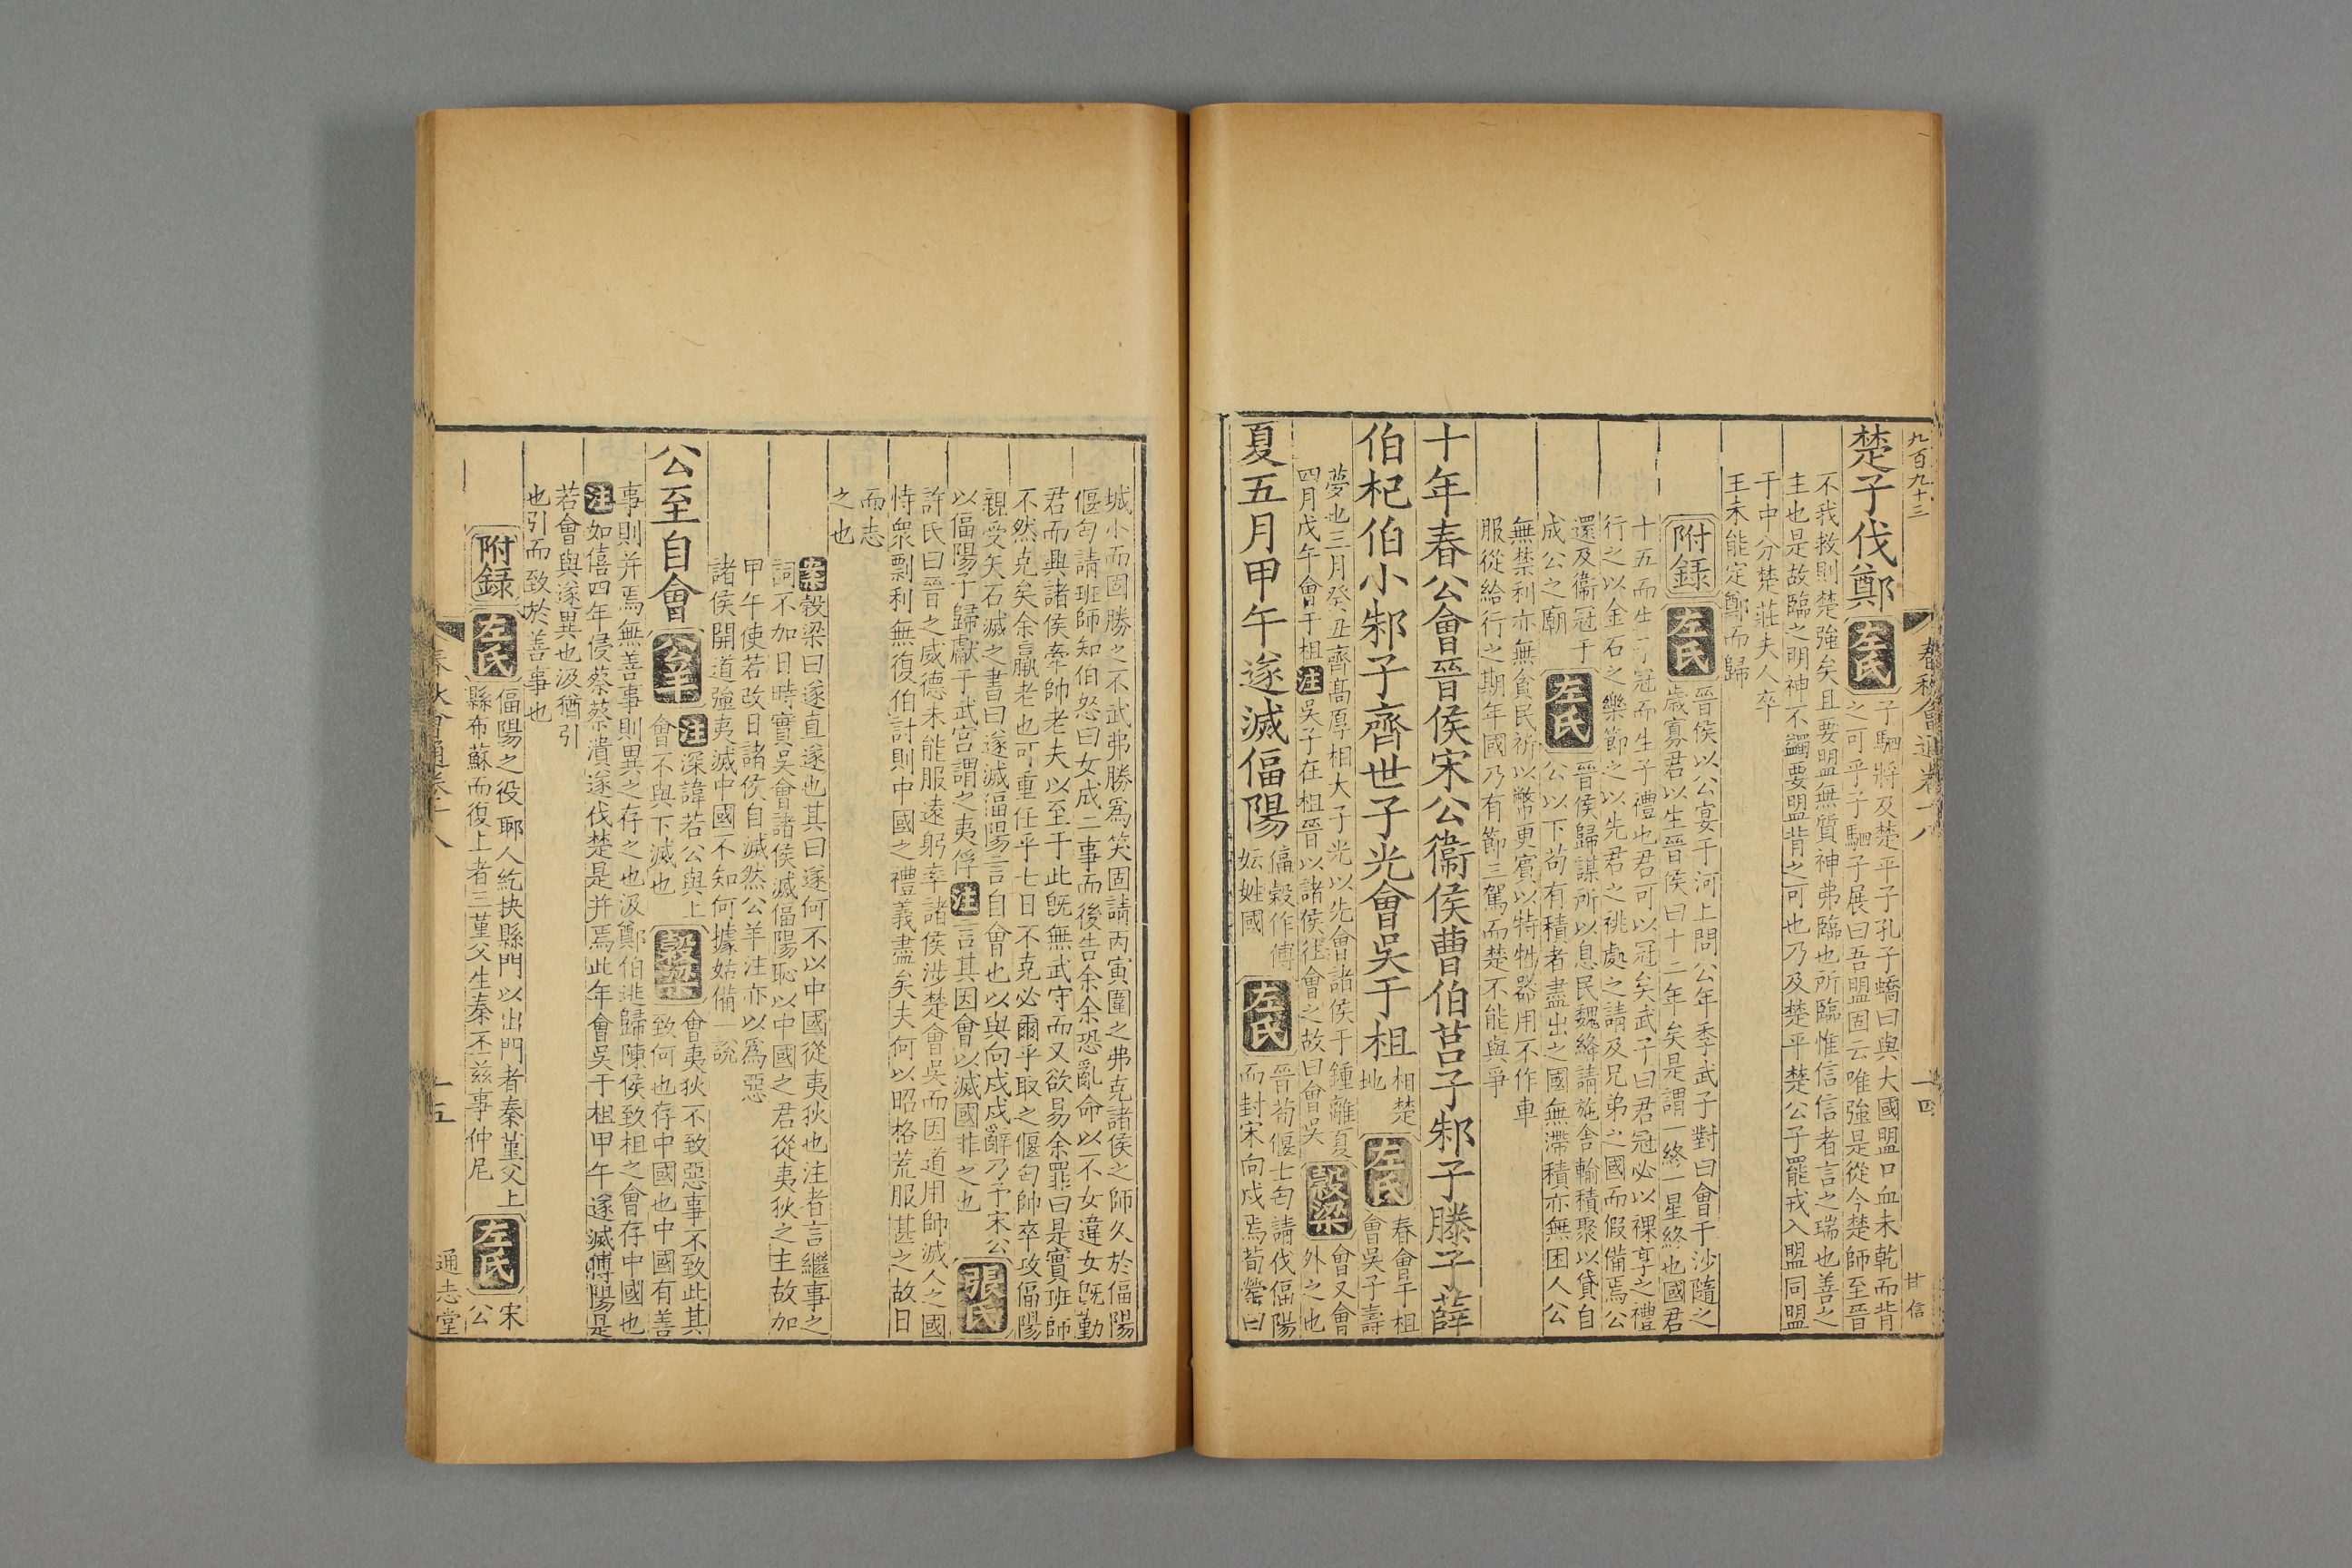 九百九十三
春秋會通卷十八
十四
甘信
楚子伐鄭
左氏
子駟將及楚平子孔子蟜曰與大國盟口血未乾而背
之可乎子駟子展曰吾盟固云唯強是從今楚師至晉
不我救則楚強矣且要盟無質神弗臨也所臨惟信信者言之瑞也善之
主也是故臨之明神不蠲要盟背之可也乃及楚平楚公子罷戎入盟同盟
于中分楚莊夫人卒
王未能定鄭而歸
附録
左氏
晉侯以公宴于河上問公年季武子對曰會于沙隨之
歲寡君以生晉侯曰十二年矣是謂一終一星終也國君
十五而生子冠而生子禮也君可以冠矣武子曰君冠必以祼享之禮
行之以金石之樂節之以先君之祧處之請及兄弟之國而假備焉公
還及衞冠于
成公之廟
左氏
晉侯歸謀所以息民魏絳請施舍輸積聚以貸自
公以下苟有積者盡出之國無滯積亦無困人公
無禁利亦無貪民祈以幣更賓以特牲器用不作車
服從給行之期年國乃有節三駕而楚不能與爭
十年春公會晉侯宋公衞侯曹伯莒子邾子滕子薛
伯杞伯小邾子齊世子光會吳于柤
柤楚
地
左氏
春會于柤
會吳子壽
夢也三月癸丑齊高厚相大子光以先會諸侯于鍾離夏
四月戊午會于柤
注
吳子在柤晉以諸侯往會之故曰會吳
穀梁
會又會
外之也
夏五月甲午遂滅偪陽
偪穀作傅
妘姓國
左氏
晉荀偃士匄請伐偪陽
而封宋向戌焉荀罃曰
城小而固勝之不武弗勝爲笑固請丙寅圍之弗克諸侯之師久於偪陽
偃匄請班師知伯怒曰女成二事而後告余余恐亂命以不女違女旣勤
君而興諸侯牽帥老夫以至于此旣無武守而又欲易余罪曰是實班師
不然克矣余羸老也可重任乎七日不克必爾乎取之偃匄帥卒攻偪陽
親受矢石滅之書曰遂滅偪陽言自會也以與向戌戌辭乃予宋公
以偪陽子歸獻于武宮謂之夷俘
注
言其因會以滅國非之也
張氏
許氏曰晉之威德未能服遠躬率諸侯涉楚會吳而因道用師滅人之國
恃衆剽利無復伯討則中國之禮義盡矣夫何以昭格荒服甚之故日
而志
之也
案
穀梁曰遂直遂也其曰遂何不以中國從夷狄也注者言繼事之
詞不加日時實吳會諸侯滅偪陽恥以中國之君從夷狄之主故加
甲午使若改日諸侯自滅然公羊注亦以爲惡
諸侯開道強夷滅中國不知何據姑備一說
公至自會
公羊
注
深諱若公與上
會不與下滅也
穀梁
會夷狄不致惡事不致此其
致何也存中國也中國有善
事則并焉無善事則異之存之也汲鄭伯逃歸陳侯致柤之會存中國也
注
如僖四年侵蔡蔡潰遂伐楚是并焉此年會吳于柤甲午遂滅傅陽是
若會與遂異也汲猶引
也引而致於善事也
附録
左氏
偪陽之役郰人紇抉縣門以出門者秦堇父上
縣布蘇而復上者三堇父生秦丕茲事仲尼
左氏
宋
公
春秋會通卷十八
十五
通志堂